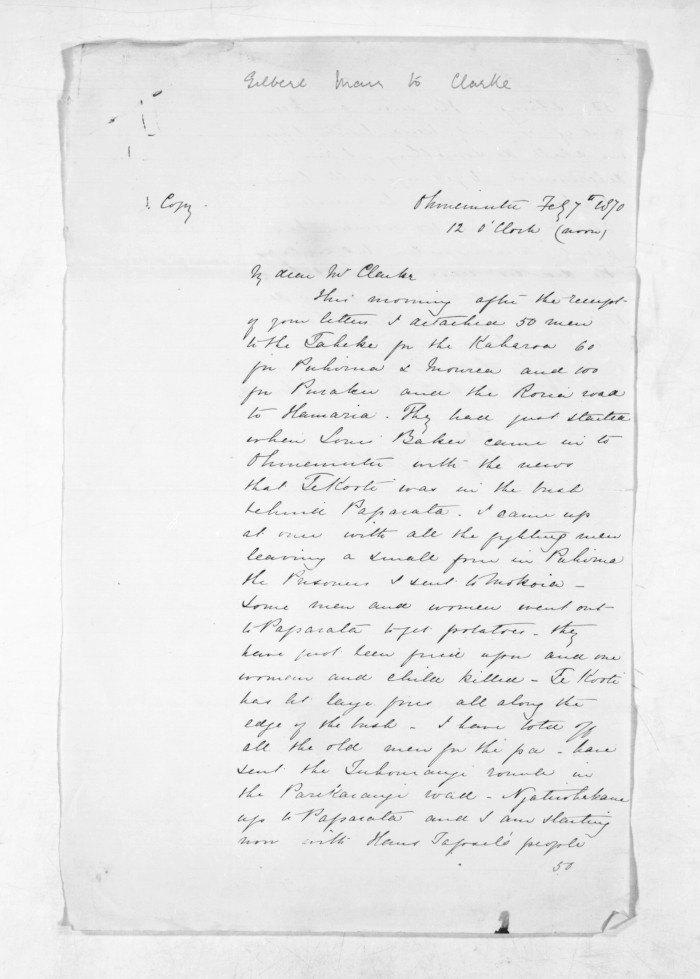 Gilbert Mair to Clarke
Copy
Ohinemutu Feby 7th 1870
12 O'Clock (noon)
My dear Mr Clarke
This morning after the receipt
of your letters I detached 50 men
to the Taheke for the Kaharoa 60
for Puhirua & Mourea and 100
for Puraku and the road
to Hamaria. They had just started
when Louis Baker came in to
Ohinemutu with the news
that Te Kooti was in the bush
behind Paparata. I came up
at once with all the fighting men
leaving a small force in Puhirua
the Prisoners I sent to Mokoia -
Some men and women went out
to Paparata to get potatoes - they
have just been fired upon and one
woman and child killed - Te Kooti
has lit large fires all along the
edge of the bush - I have told off
all the old men for the pa - have
sent the Tuhourangi round in
the Parikarangi road -
up to Paparata and I am starting
now with Hans Tapsel's people
50
1